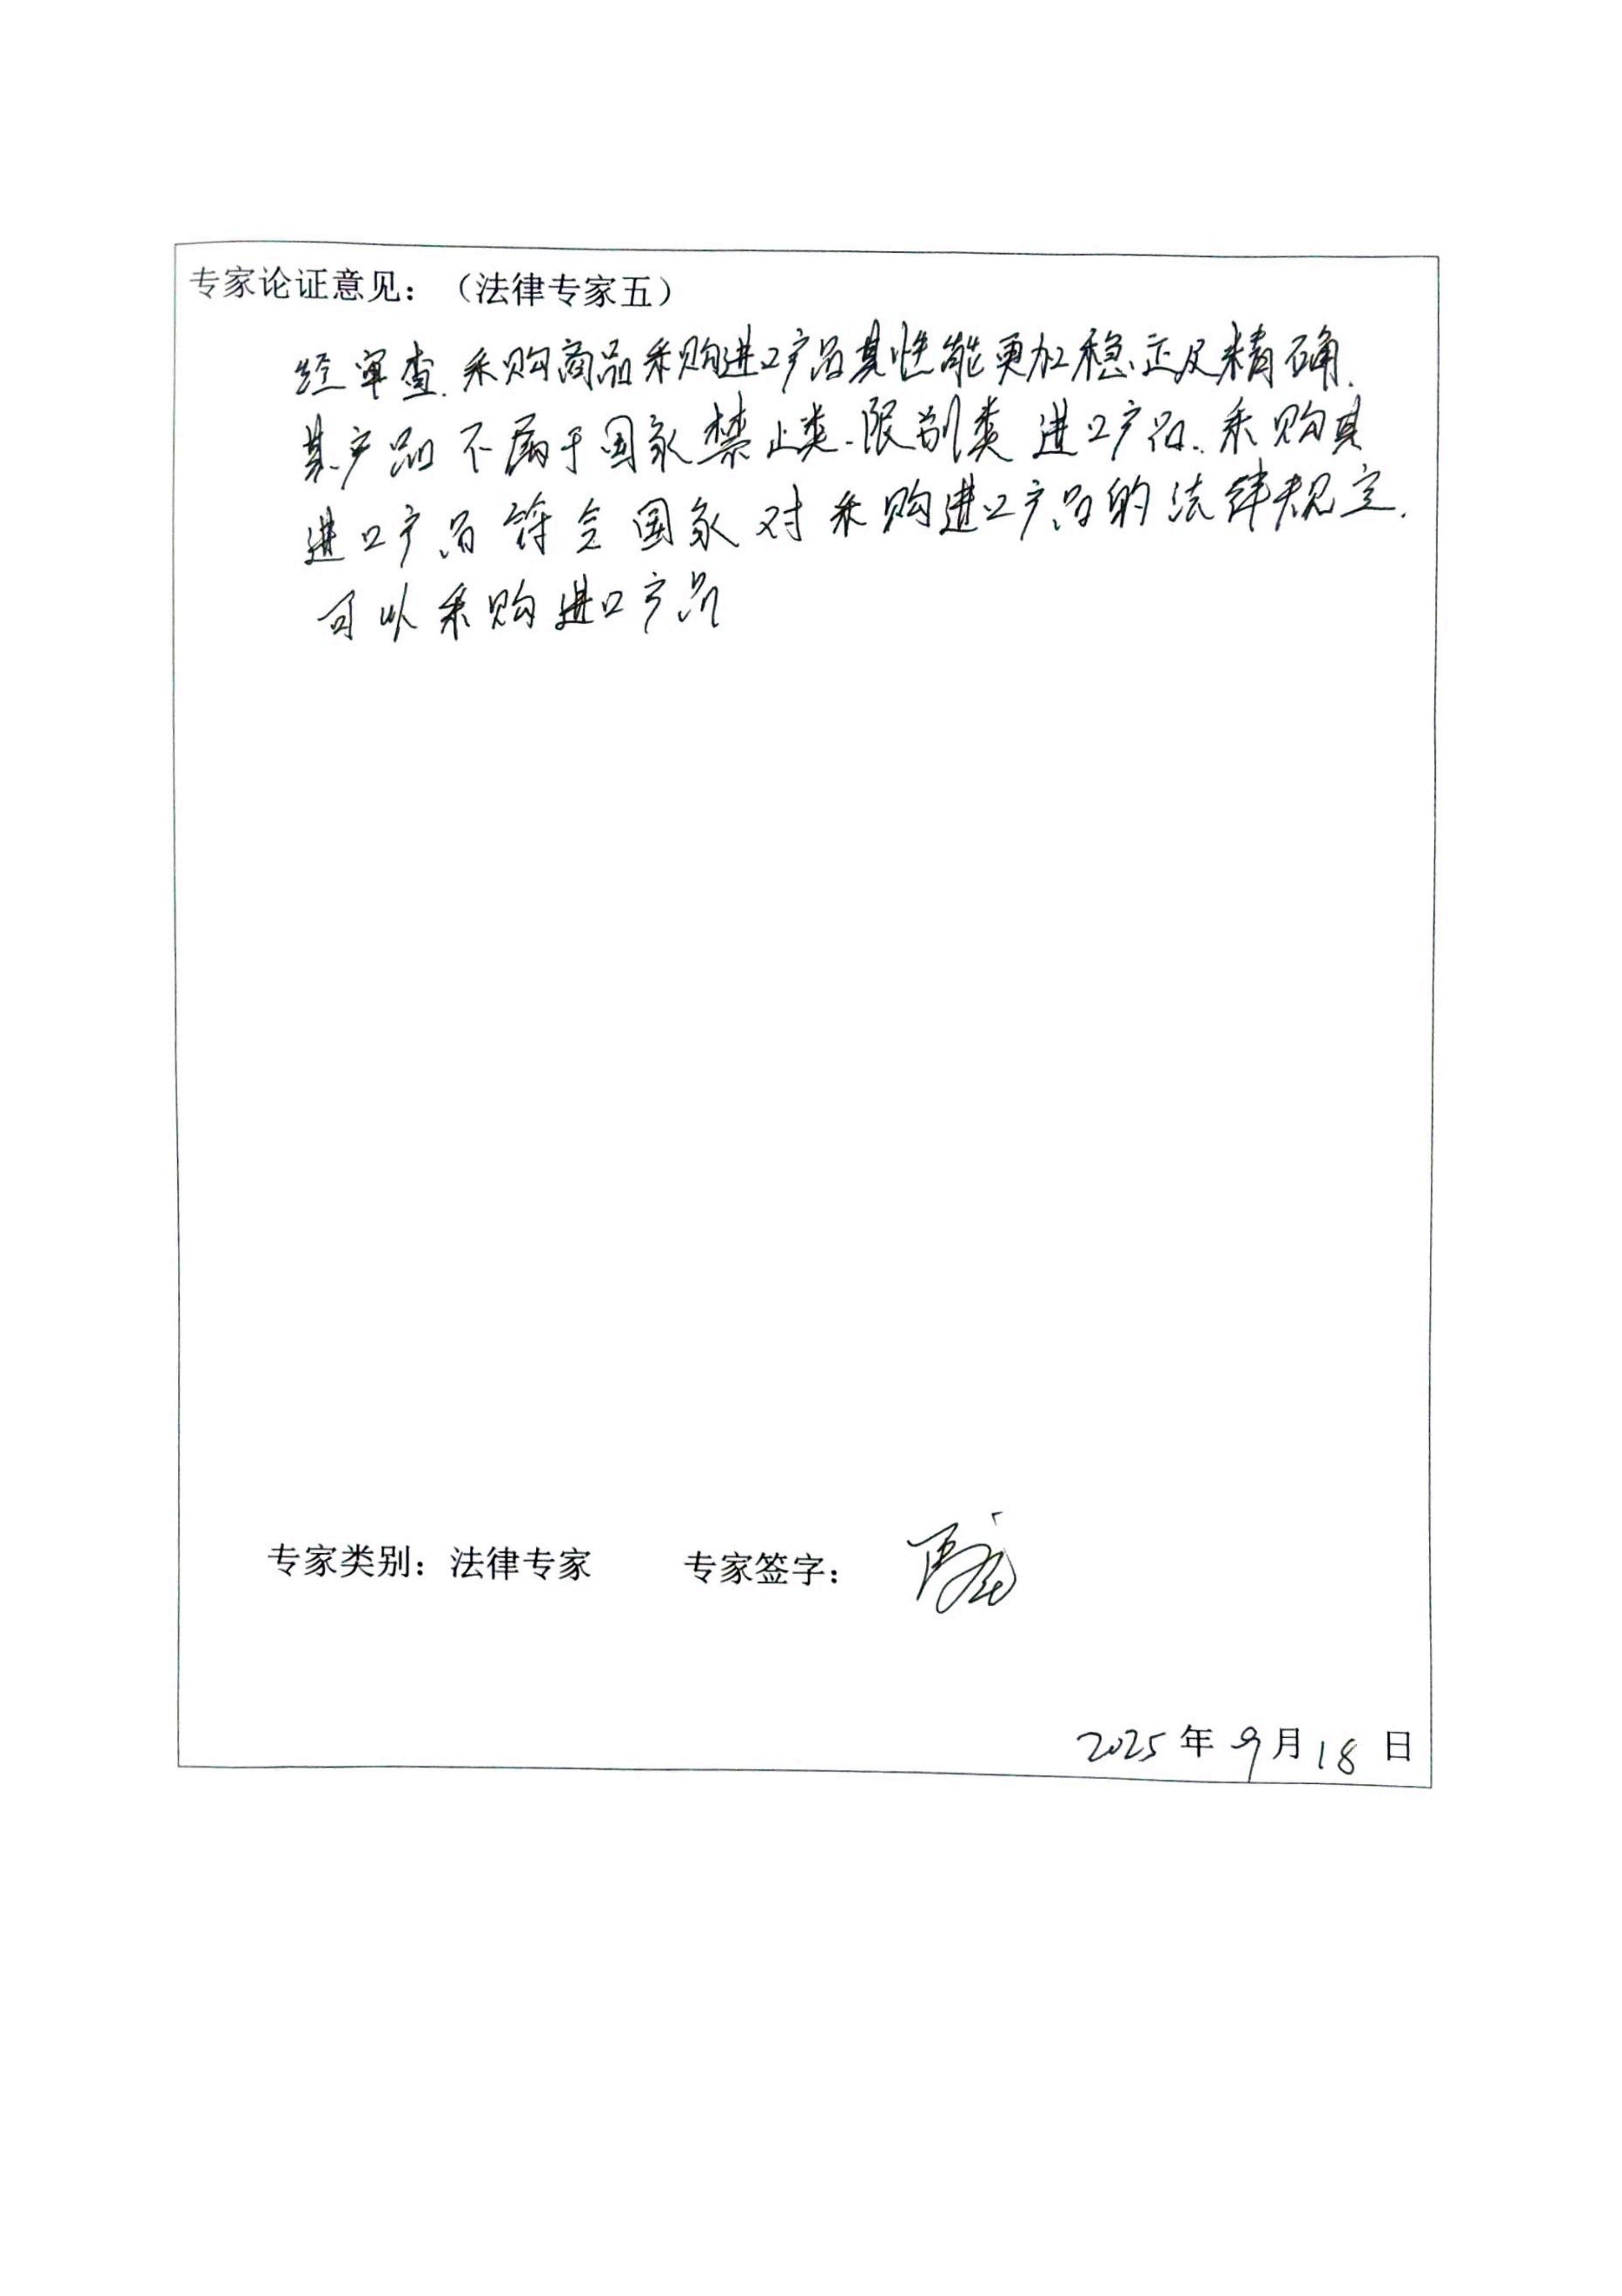 专家论证意见：（法律专家五）
经审查.采购商品采购进口产品其性能更加稳定及精确.
其产品不属于国家禁止类.限制类进口产品.采购其
进口产品符合国家对采购进口产品的法律规定.
可以采购进口产品
专家类别：法律专家 专家签字：
2025年9月18日